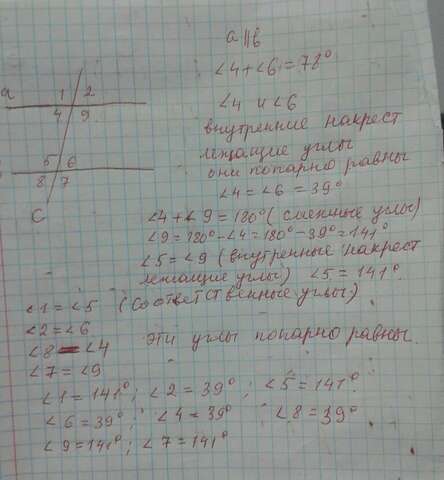 a || b
∠4+∠6=78°
a
1 2
4 9
∠4 и ∠6
внутренние накрест
лежащие углы
они попарно равны
∠4=∠6=39°
5 6
8 7
c
∠4+∠9=180° (смежные углы)
∠9=180°-∠4=180°-39°=141°
∠5=∠9 (внутренные накрест
лежащие углы) ∠5=141°
∠1=∠5 (соответственные углы)
∠2=∠6
∠8=∠4 эти углы попарно равны.
∠7=∠9
∠1=141°; ∠2=39°; ∠5=141°
∠6=39°; ∠4=39° ∠8=39°
∠9=141°; ∠7=141°